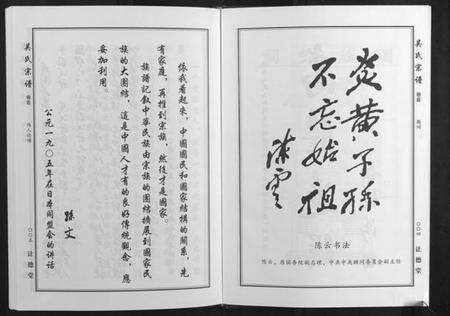 吴氏宗谱
卷首
伟人论谱
〇〇三
让德堂
依我看起来，中国国民和国家结构的关系，先
有家庭，再推到宗族，然后才是国家。
族谱记叙中华民族由宗族的团结扩展到国家民
族的大团结，这是中国人才有的良好传统观念，应
妥加利用
孙文
公元一九〇五年在日本同盟会的讲话
吴氏宗谱
卷首
〇〇四
让德堂
炎黄子孙
不忘始祖
陈云
陈云书法
陈云，原国务院副总理、中共中央顾问委员会副主任